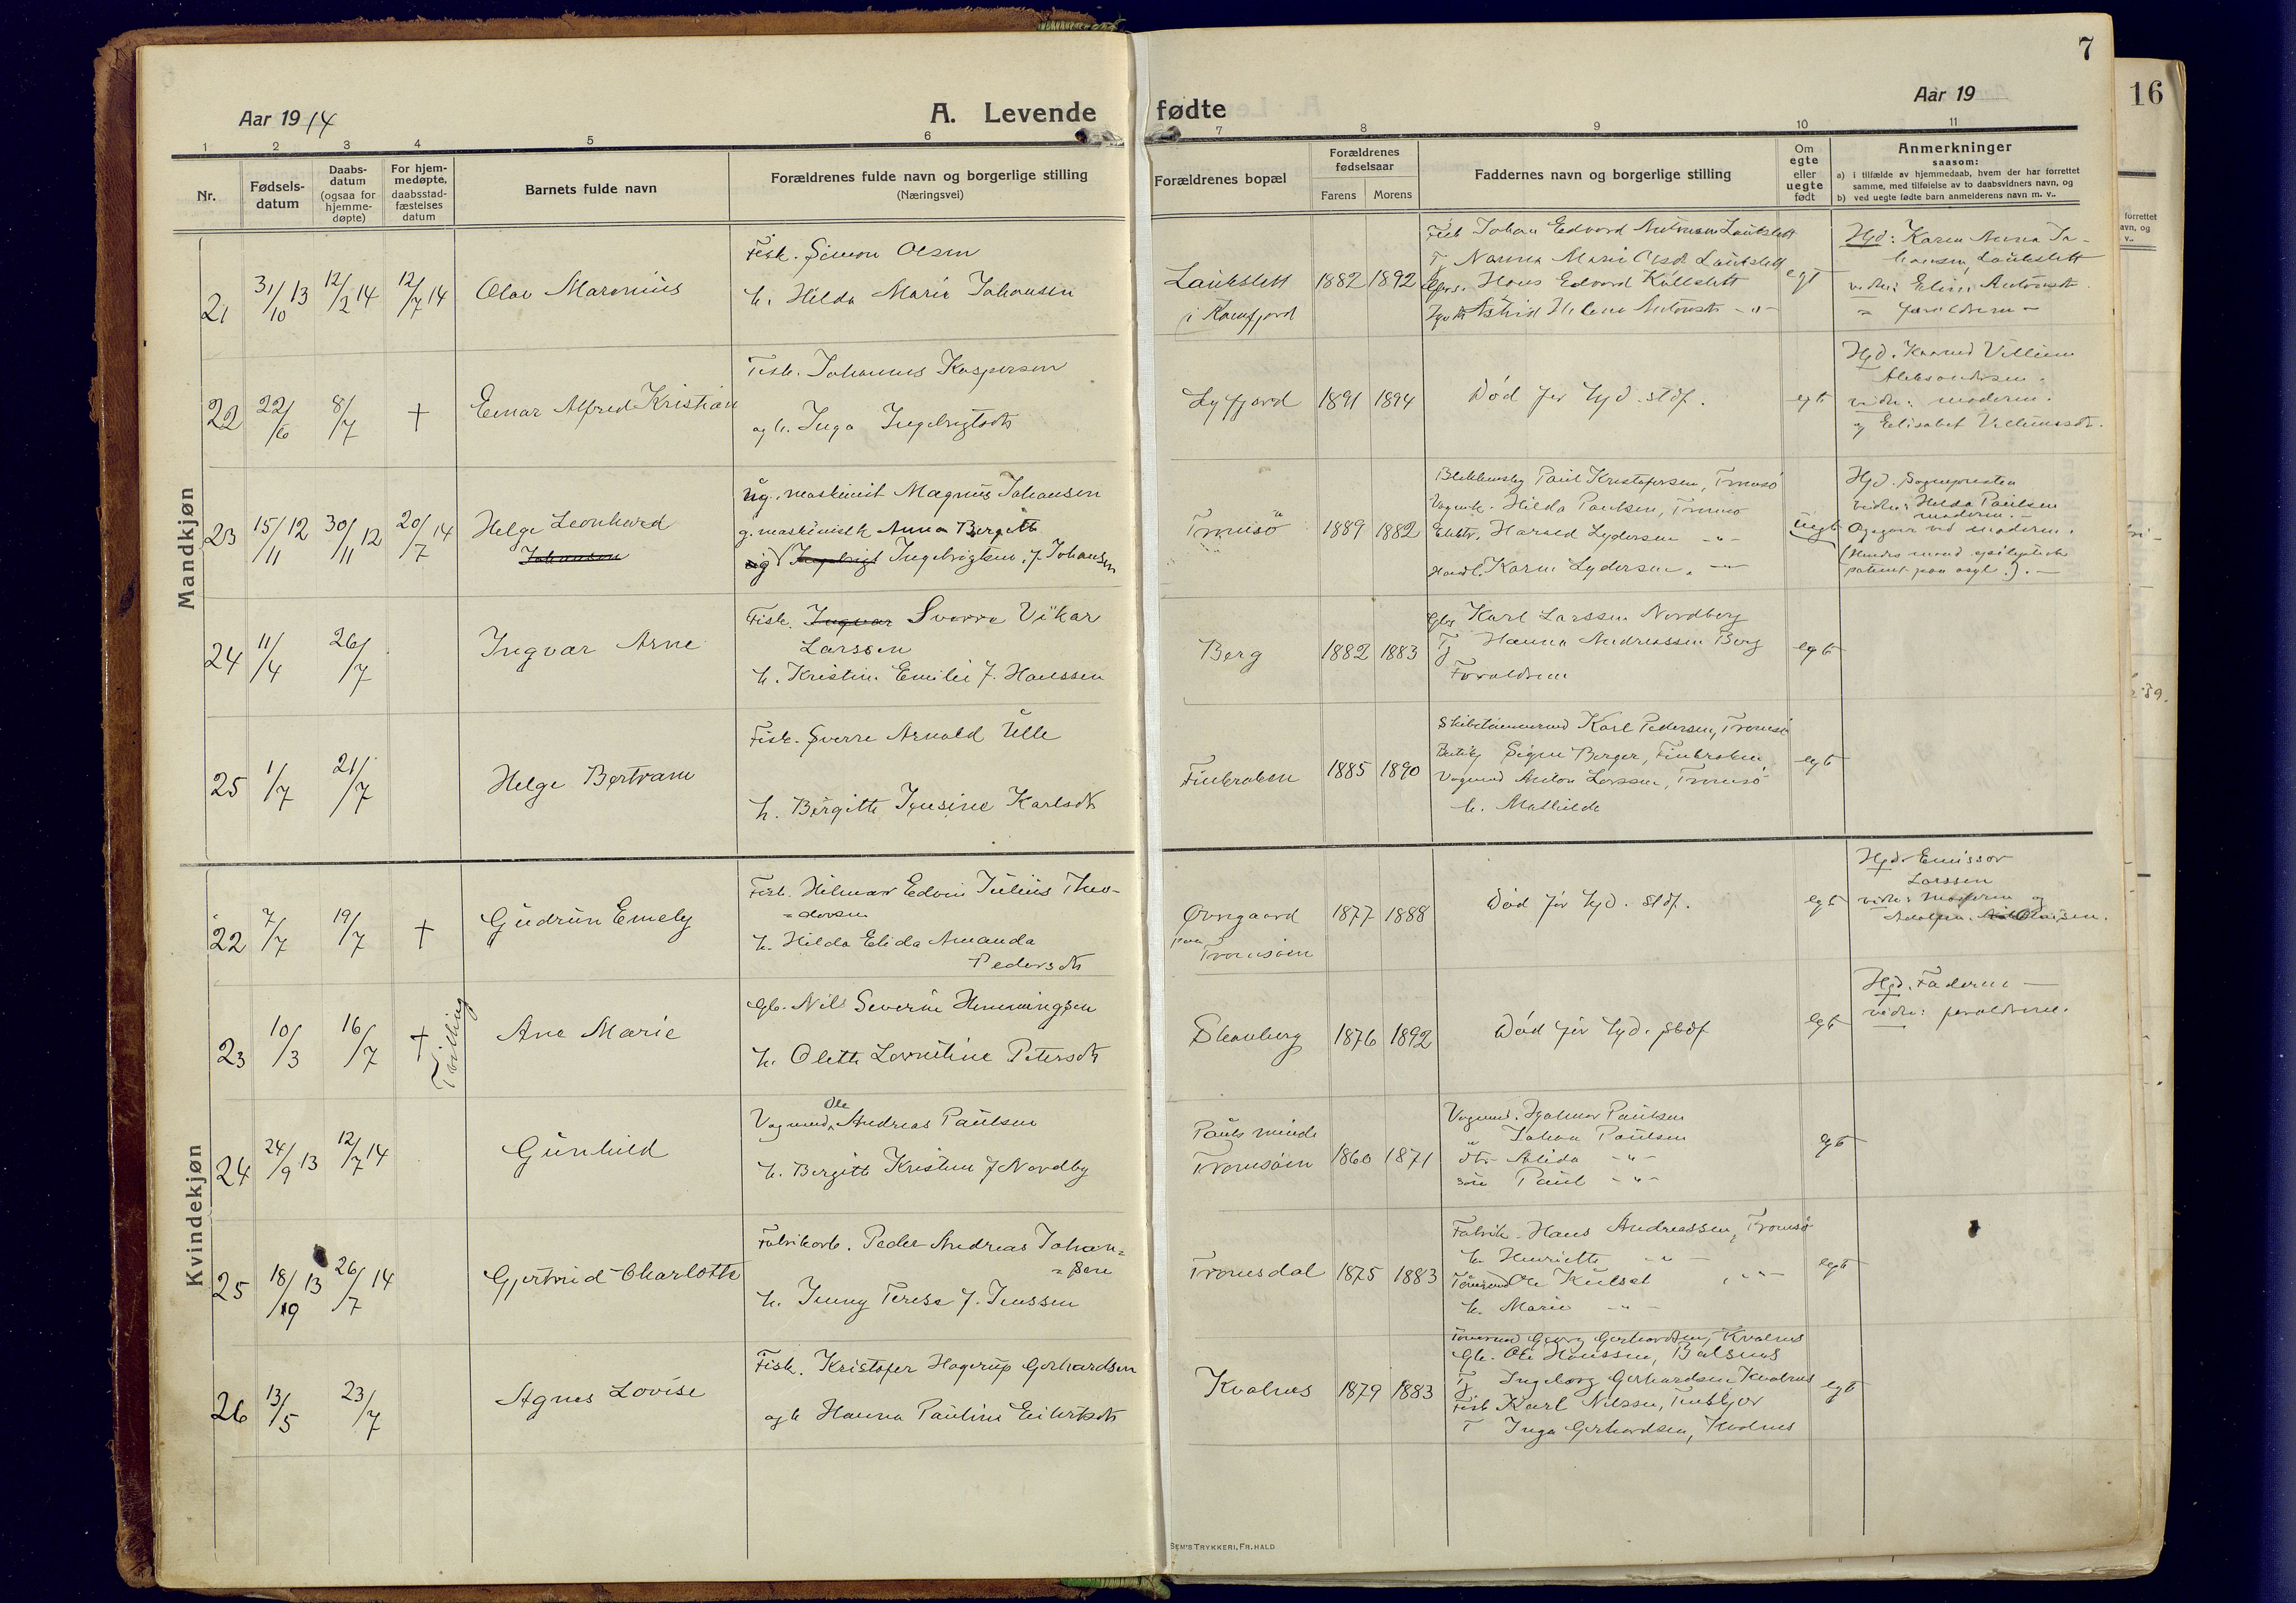 7
16
Aar 1914
A. Levende fødte
Aar 19
1 2 3 4 5 6 7 8 9 10 11
Nr.
Fødsels-
datum
Daabs-
datum
(ogsaa for
hjemme-
døpte)
For hjem-
medøpte,
daabsstad-
fæstelses
datum
Barnets fulde navn
Forældrenes fulde navn og borgerlige stilling
(Næringsvei)
Forældrenes bopæl
Forældrenes
fødselsaar
Farens Morens
Faddernes navn og borgerlige stilling
Om
egte
eller
uegte
født
Anmerkninger
saasom:
a) i tilfælde av hjemmedaab, hvem der har forrettet
samme, med tilføielse av to daabsvidners navn, og
b) ved uegte fødte barn anmelderens navn m. v..
forrettet
avn, og
v..
Mandkjøn
21 31/10 13 12/2 14 12/7 14
Olav
Fisk. Simon Olsen
h. Hilda Marie Johansen
Laukslett
i Ramfjord
1882 1892
Nanna Marie
Hans Edvard
Helene
egt
Hjd: Karen Anna
Laukslett
vidn:
22 22/6 8/7 †
Einar Alfred Kristian
Fisk. Johannes Kaspersen
og h. Inga Ingebrigtsdtr
Lyfjord
1891 1894
Død før hjd. stdf.
egt
Hjd.
vidn: moderen.
og Elisabet
23 15/11 12 30/11 12 20/7 14
Helge Leonhard
Johansen
ug. maskinist Magnus Johansen
g. maskinistk Anna Bergitte
Ingebrigtsen, f. Johansen
Tromsø
1889 1882
Paul Kristofersen, Tromsø
Hilda Paulsen, Tromsø
Harald Lydersen -"-
Karen Lydersen. -"-
uegte
Hjd. Sognepresten
vidn: Hilda Paulsen
moderen.
Opgaver ved moderen.
24 11/4 26/7
Ingvar Arne
Fisk. Ingvar Sverre Vikar
Larssen
h. Kristine Emilie f. Hanssen
Berg
1882 1883
Karl Larssen Nordberg
Hanna Andreassen Berg
Forældrene
egt
25 1/7 21/7
Helge Bertram
Fisk. Sverre Arnold Ulle
h. Bergitte Jensine Karlsdtr
Finkroken
1885 1890
Karl Pedersen, Tromsø
Signe Berger, Finkroken
Anton Larssen, Tromsø
h. Mathilde
egt
Kvindekjøn
22 7/7 19/7 †
Gudrun Emely
Fisk. Hilmar Edvin Julius Theo-
=dorsen
h. Hilda Elida Amanda
Pedersdtr
Ørnegaard
paa
Tromsøen
1877 1888
Død før hjd. stdf.
egt
Hjd. Emissær
Larssen
vidn: Moderen og
23 10/3 16/7 †
Tvilling
Ane Marie
Gb. Nils Severin Hemmingsen
h. Olette Lorentine Petersdtr
Skavberg
1876 1892
Død før hjd. stdf
egt
Hjd. Faderen
vidn: forældrene.
24 24/9 13 12/7 14
Gunhild
Vognmd. Ole Andreas Paulsen
h. Bergitte Kristine f Nordby
Pauls minde
Tromsøen
1860 1871
Vognmd. Hjalmar Paulsen
" Johan Paulsen
dtr Alida -"-
søn Paul -"-
egt
25 18/9 13 26/7 14
Gjertrud Charlotte
Fabrikarb. Peder Andreas Johan=
=sen
h. Jenny Terese f. Jenssen
Tromsdal
1875 1883
Fabrik. Hans Andreassen, Tromsø
h. Henriette -"-
h. Marie -"-
egt
26 13/5 23/7
Agnes Lovise
Fisk. Kristofer Hagerup Gerhardsen
og h Hanna Pauline Eilertsdtr
Kvalnes
1879 1883
Georg Gerhardsen, Kvalnes
Gb. Ole Hanssen, Balsnes
Ingeborg Gerhardsen Kvalnes
Fisk Karl Nilssen,
Inga Gerhardsen, Kvalnes
egt
SEM'S TRYKKERI, FR. HALD